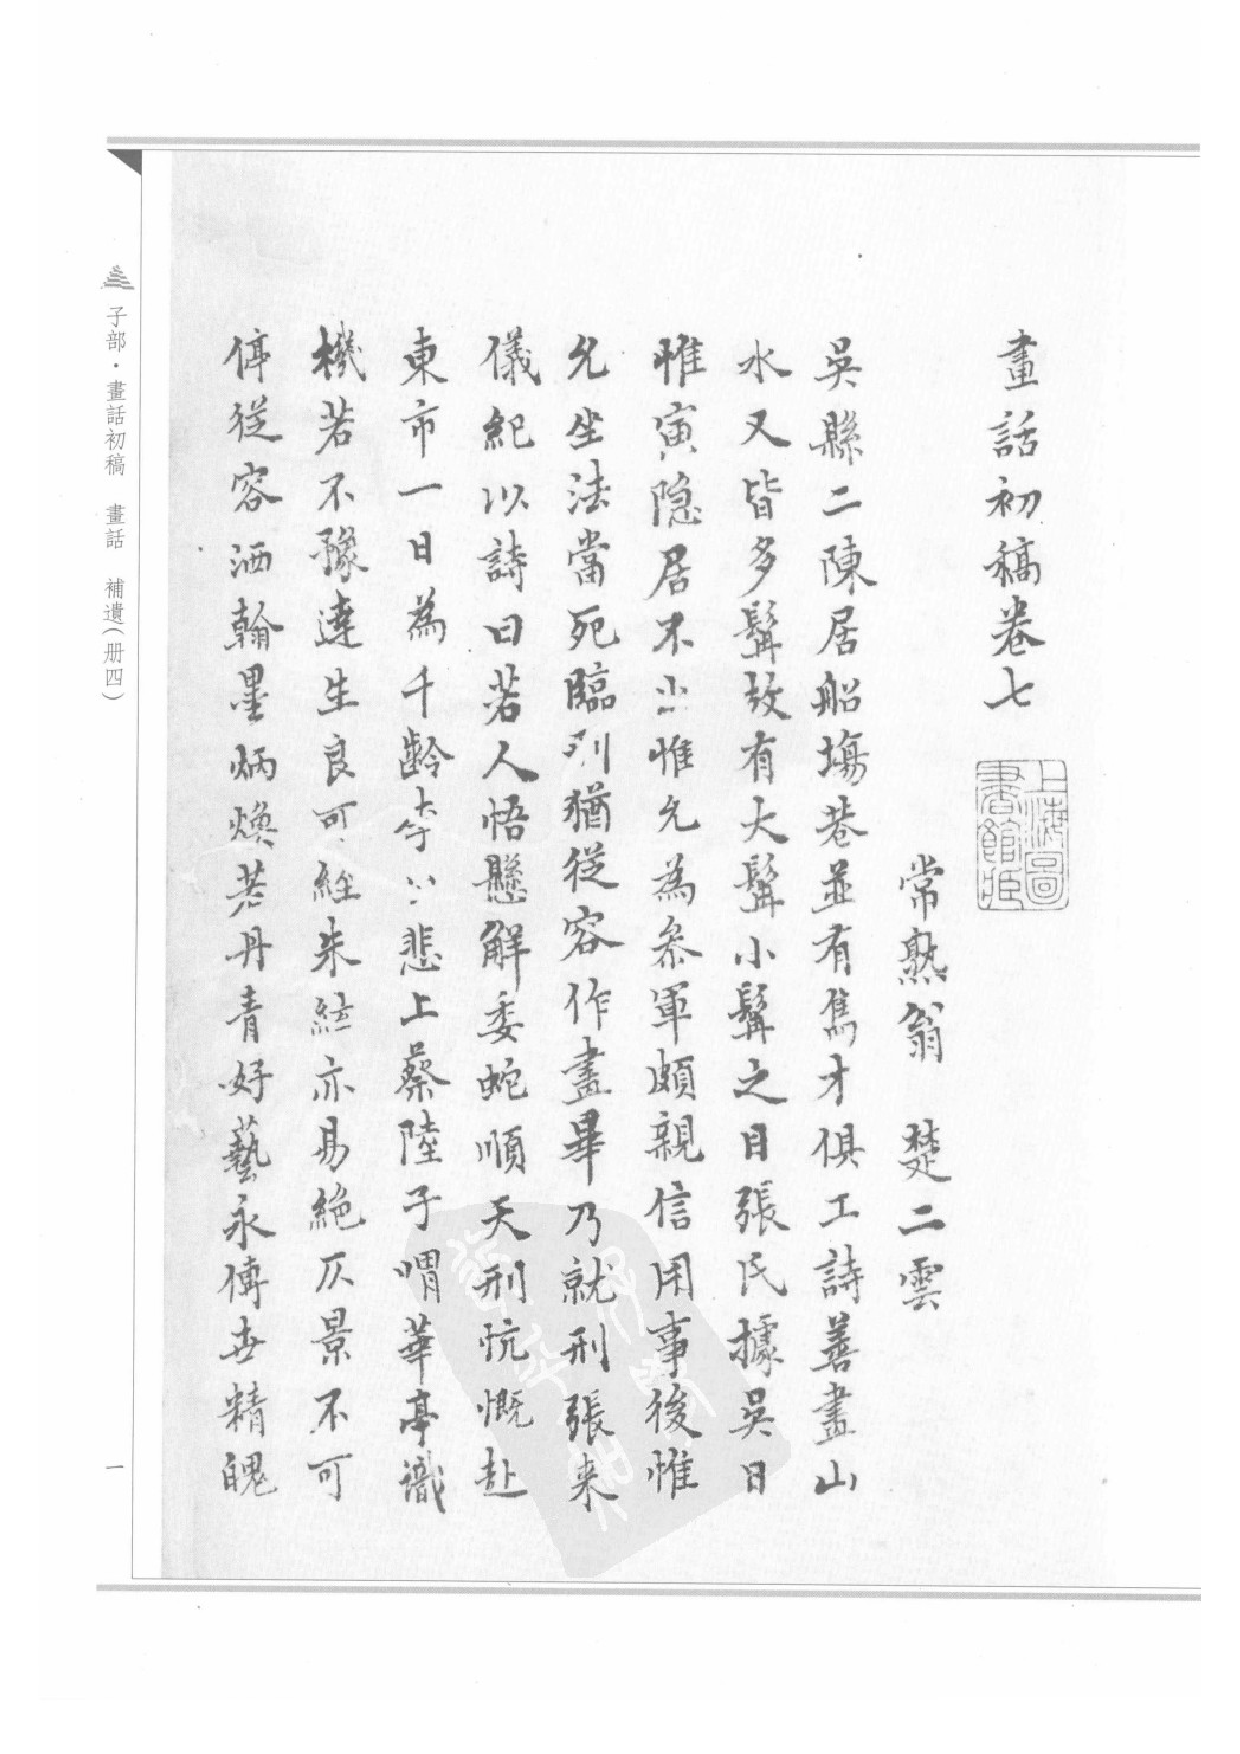 畫話初稿卷七
上海圖書館藏
常熟翁 楚二雲
吳縣二陳居船塲巷並有雋才俱工詩善畫山
水又皆多髯故有大髯小髯之目張氏據吳日
惟寅隐居不出惟允為叅軍頗親信用事後惟
允坐法當死臨刑猶從容作畫畢乃就刑張來
儀紀以詩曰若人悟懸解委蛇順天刑忼慨赴
東市一日為千齡李公悲上蔡陸子喟華亭識
機若不豫達生良可經朱絃亦易絕仄景不可
停從容洒翰墨炳煥若丹青好藝永傳世精魄
子部·畫話初稿 畫話 補遺(册四)
一